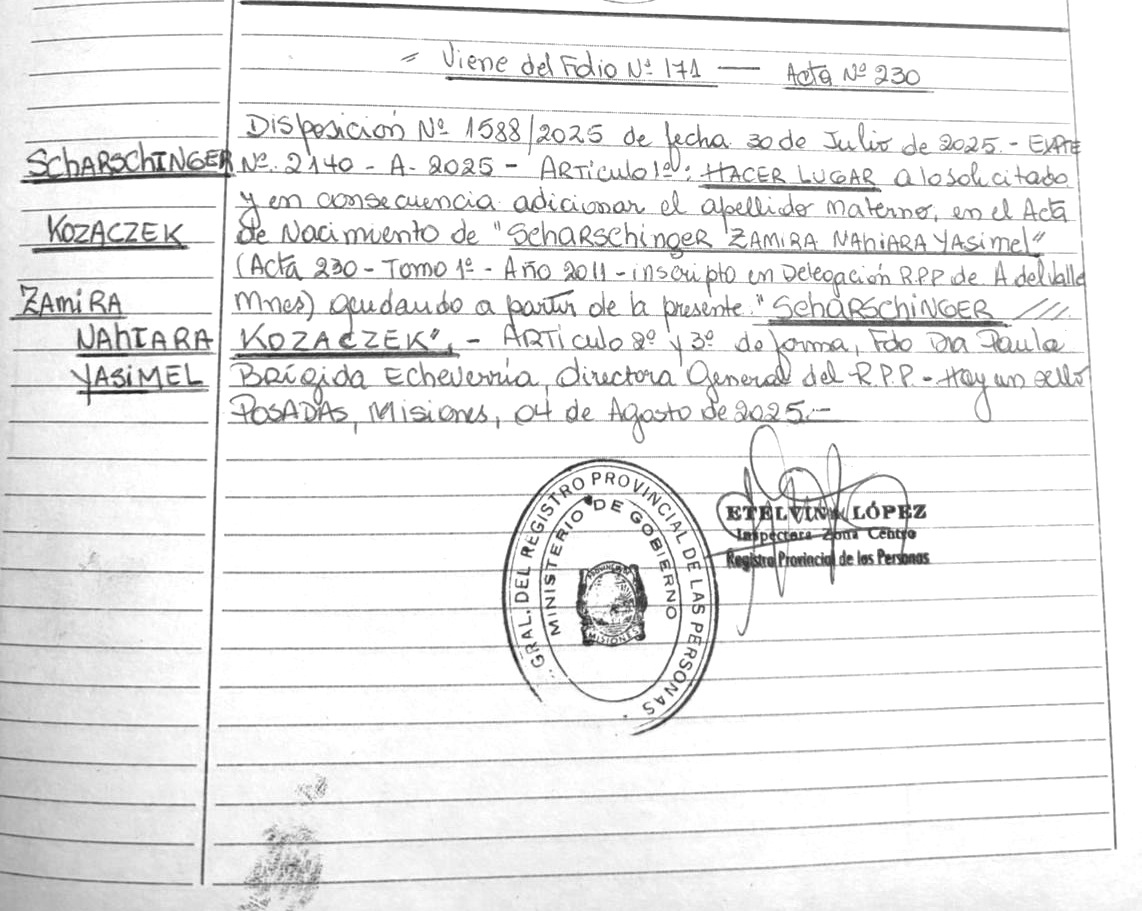 = Viene del Folio Nº 171 — Acta Nº 230
Disposición Nº 1588/2025 de fecha 30 de Julio de 2025.- EXPTE
SCHARSCHINGER Nº. 2140 - A - 2025 - ARTiculo 1º: HACER LUGAR a lo solicitado
y en consecuencia adicionar el apellido materno, en el Acta
KOZACZEK de Nacimiento de "ScharSchinger ZAMIRA NAHIARA YASimel"
(Acta 230 - Tomo 1º - Año 2011 - inscripto en Delegación R.P.P de A del Valle
ZAMIRA Mnes) quedando a partir de la presente: "SCHARSCHINGER ///.
NAHIARA KOZACZEK", - ARTiculo 2º y 3º de forma, Fdo Dra Paula
YASIMEL Brígida Echeverría, Directora General del R.P.P. - Hay un sello
POSADAS, Misiones, 04 de Agosto de 2025.-
GRAL. DEL REGISTRO PROVINCIAL DE LAS PERSONAS
MINISTERIO DE GOBIERNO
MISIONES
ETELVINA LÓPEZ
Inspectora Zona Centro
Registro Provincial de las Personas